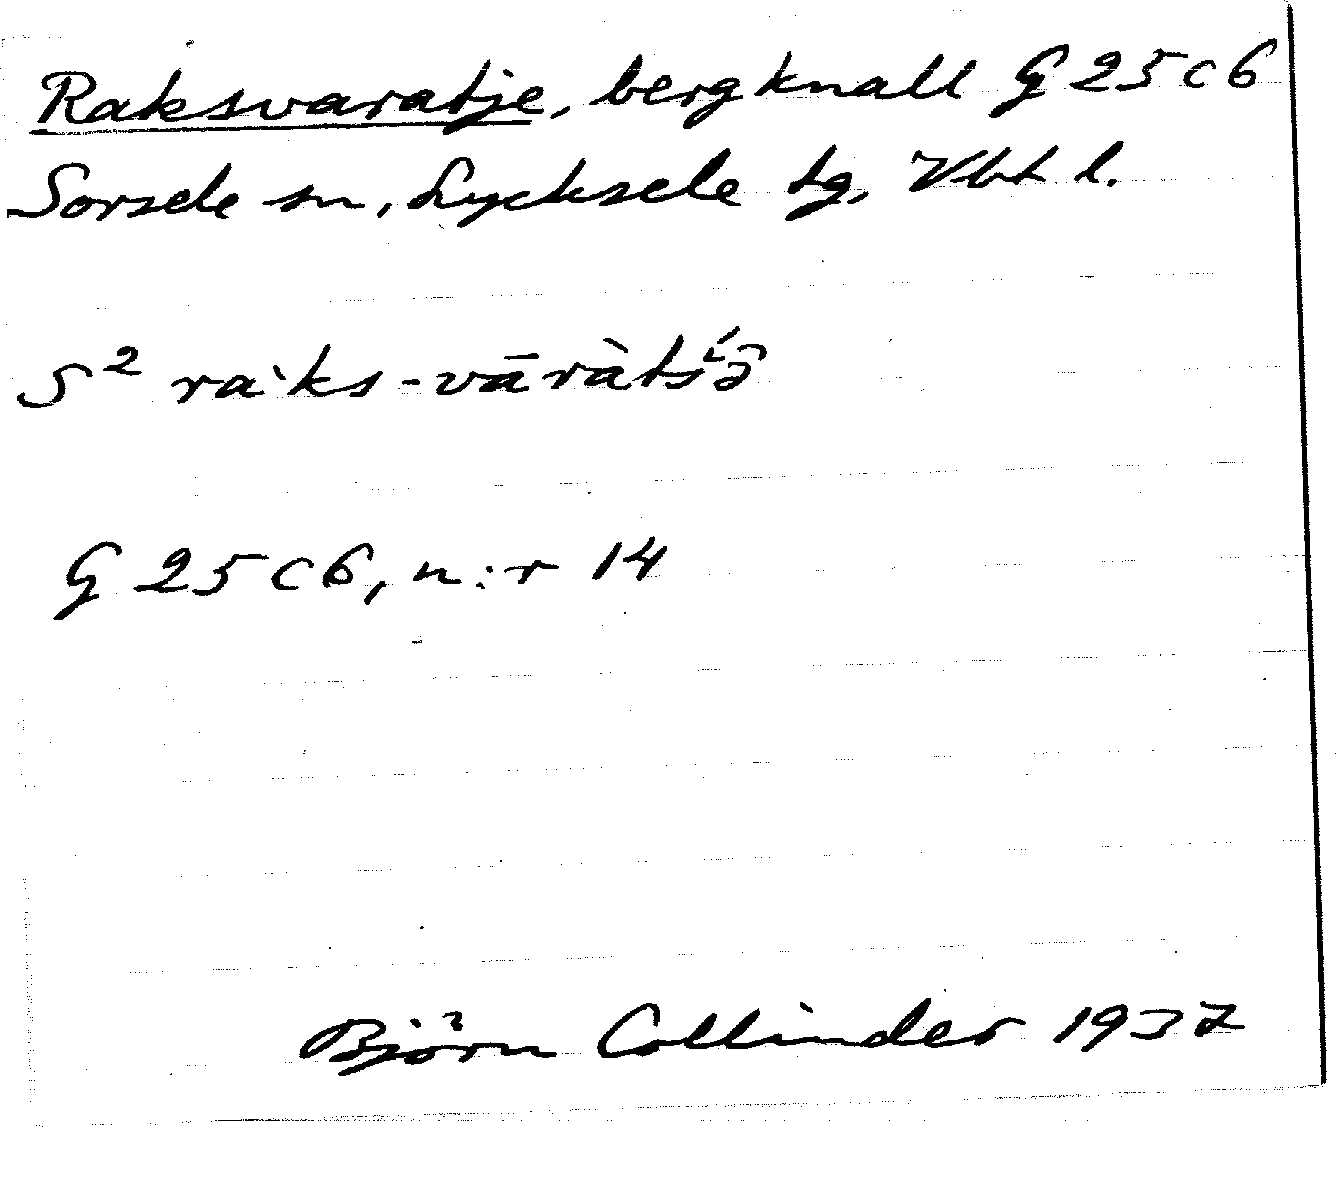 Raksvaratje, bergknall G 25 c 6
Sorsele sn, Lycksele tg, Vbt l.
S² raˋks-vāràtśə̑
G 25 c 6, n:r 14
Björn Collinder 1937